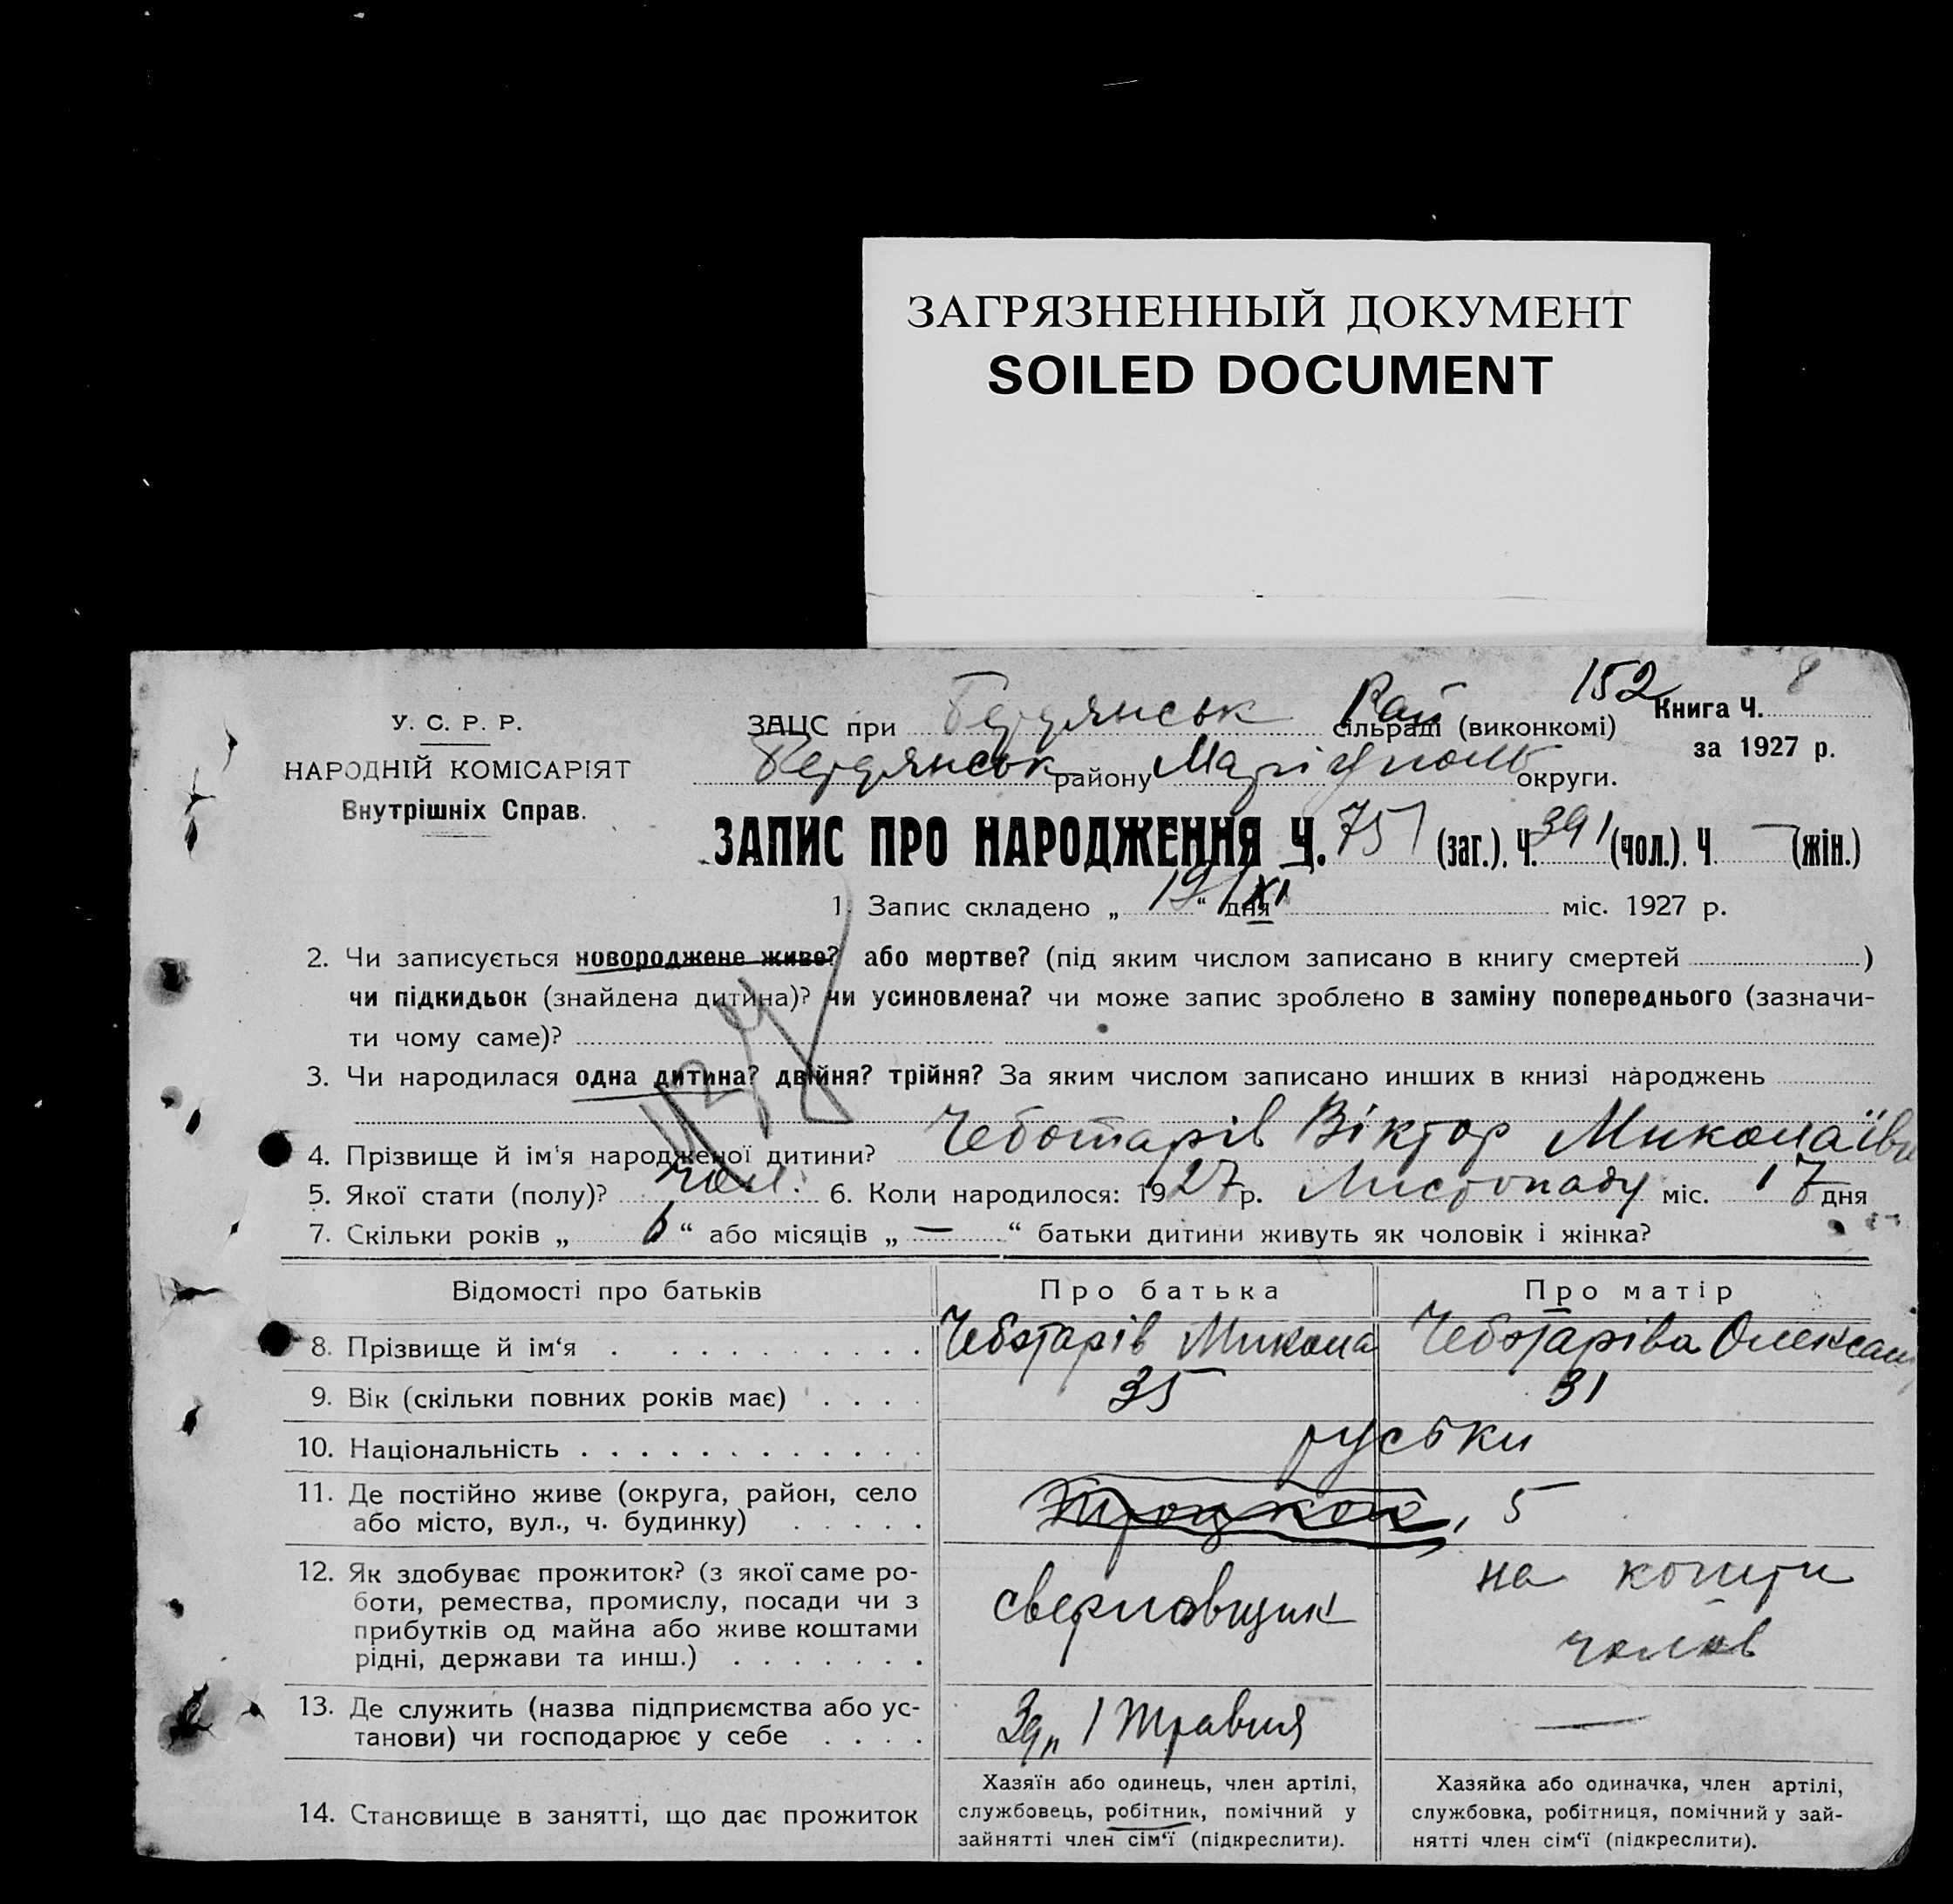 ЗАГРЯЗНЕННЫЙ ДОКУМЕНТ
SOILED DOCUMENT
152 8
У. С. Р. Р.
НАРОДНІЙ КОМІСАРІЯТ
Внутрішніх Справ.
ЗАЦС при Бердянськ Рай сільраді (виконкомі)
Книга Ч.
за 1927 р.
Бердянськ району Маріуполь округи.
ЗАПИС ПРО НАРОДЖЕННЯ Ч. 751 (заг.). Ч. 391 (чол.). Ч — (жін.)
1. Запис складено „ 19 “ дня XI міс. 1927 р.
2. Чи записується новороджене живе? або мертве? (під яким числом записано в книгу смертей )
чи підкидьок (знайдена дитина)? чи усиновлена? чи може запис зроблено в заміну попереднього (зазначи-
ти чому саме)?
3. Чи народилася одна дитина? двійня? трійня? За яким числом записано инших в книзі народжень
4. Прізвище й ім‘я народженої дитини? Чеботарів Віктор Миколаїв
5. Якої стати (полу)? чол. 6. Коли народилося: 1927 р. Листопаду міс. 17 дня
7. Скільки років „ 6 “ або місяців „ — “ батьки дитини живуть як чоловік і жінка?
Відомості про батьків Про батька Про матір
8. Прізвище й ім‘я Чеботарів Микола Чеботаріва Олександ
9. Вік (скільки повних років має) 35 31
10. Національність руськи
11. Де постійно живе (округа, район, село
або місто, вул., ч. будинку) Троцкого, 5
12. Як здобуває прожиток? (з якої саме ро-
боти, ремества, промислу, посади чи з
прибутків од майна або живе коштами
рідні, держави та инш.)
сверловщик
на кошти
чолов
13. Де служить (назва підприємства або ус-
танови) чи господарює у себе
1 Травня —
14. Становище в занятті, що дає прожиток
Хазяїн або одинець, член артілі,
службовець, робітник, помічний у
зайнятті член сім‘ї (підкреслити).
Хазяйка або одиначка, член артілі,
службовка, робітниця, помічний у зай-
нятті член сім‘ї (підкреслити).